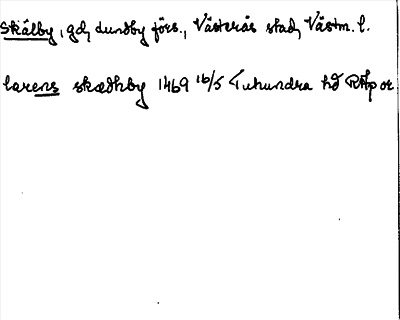 Skälby, gd, Lundby förs., Västerås stad, Västm. l.
larens skædhby 1469 16/5 Tuhundra hd RAp or.